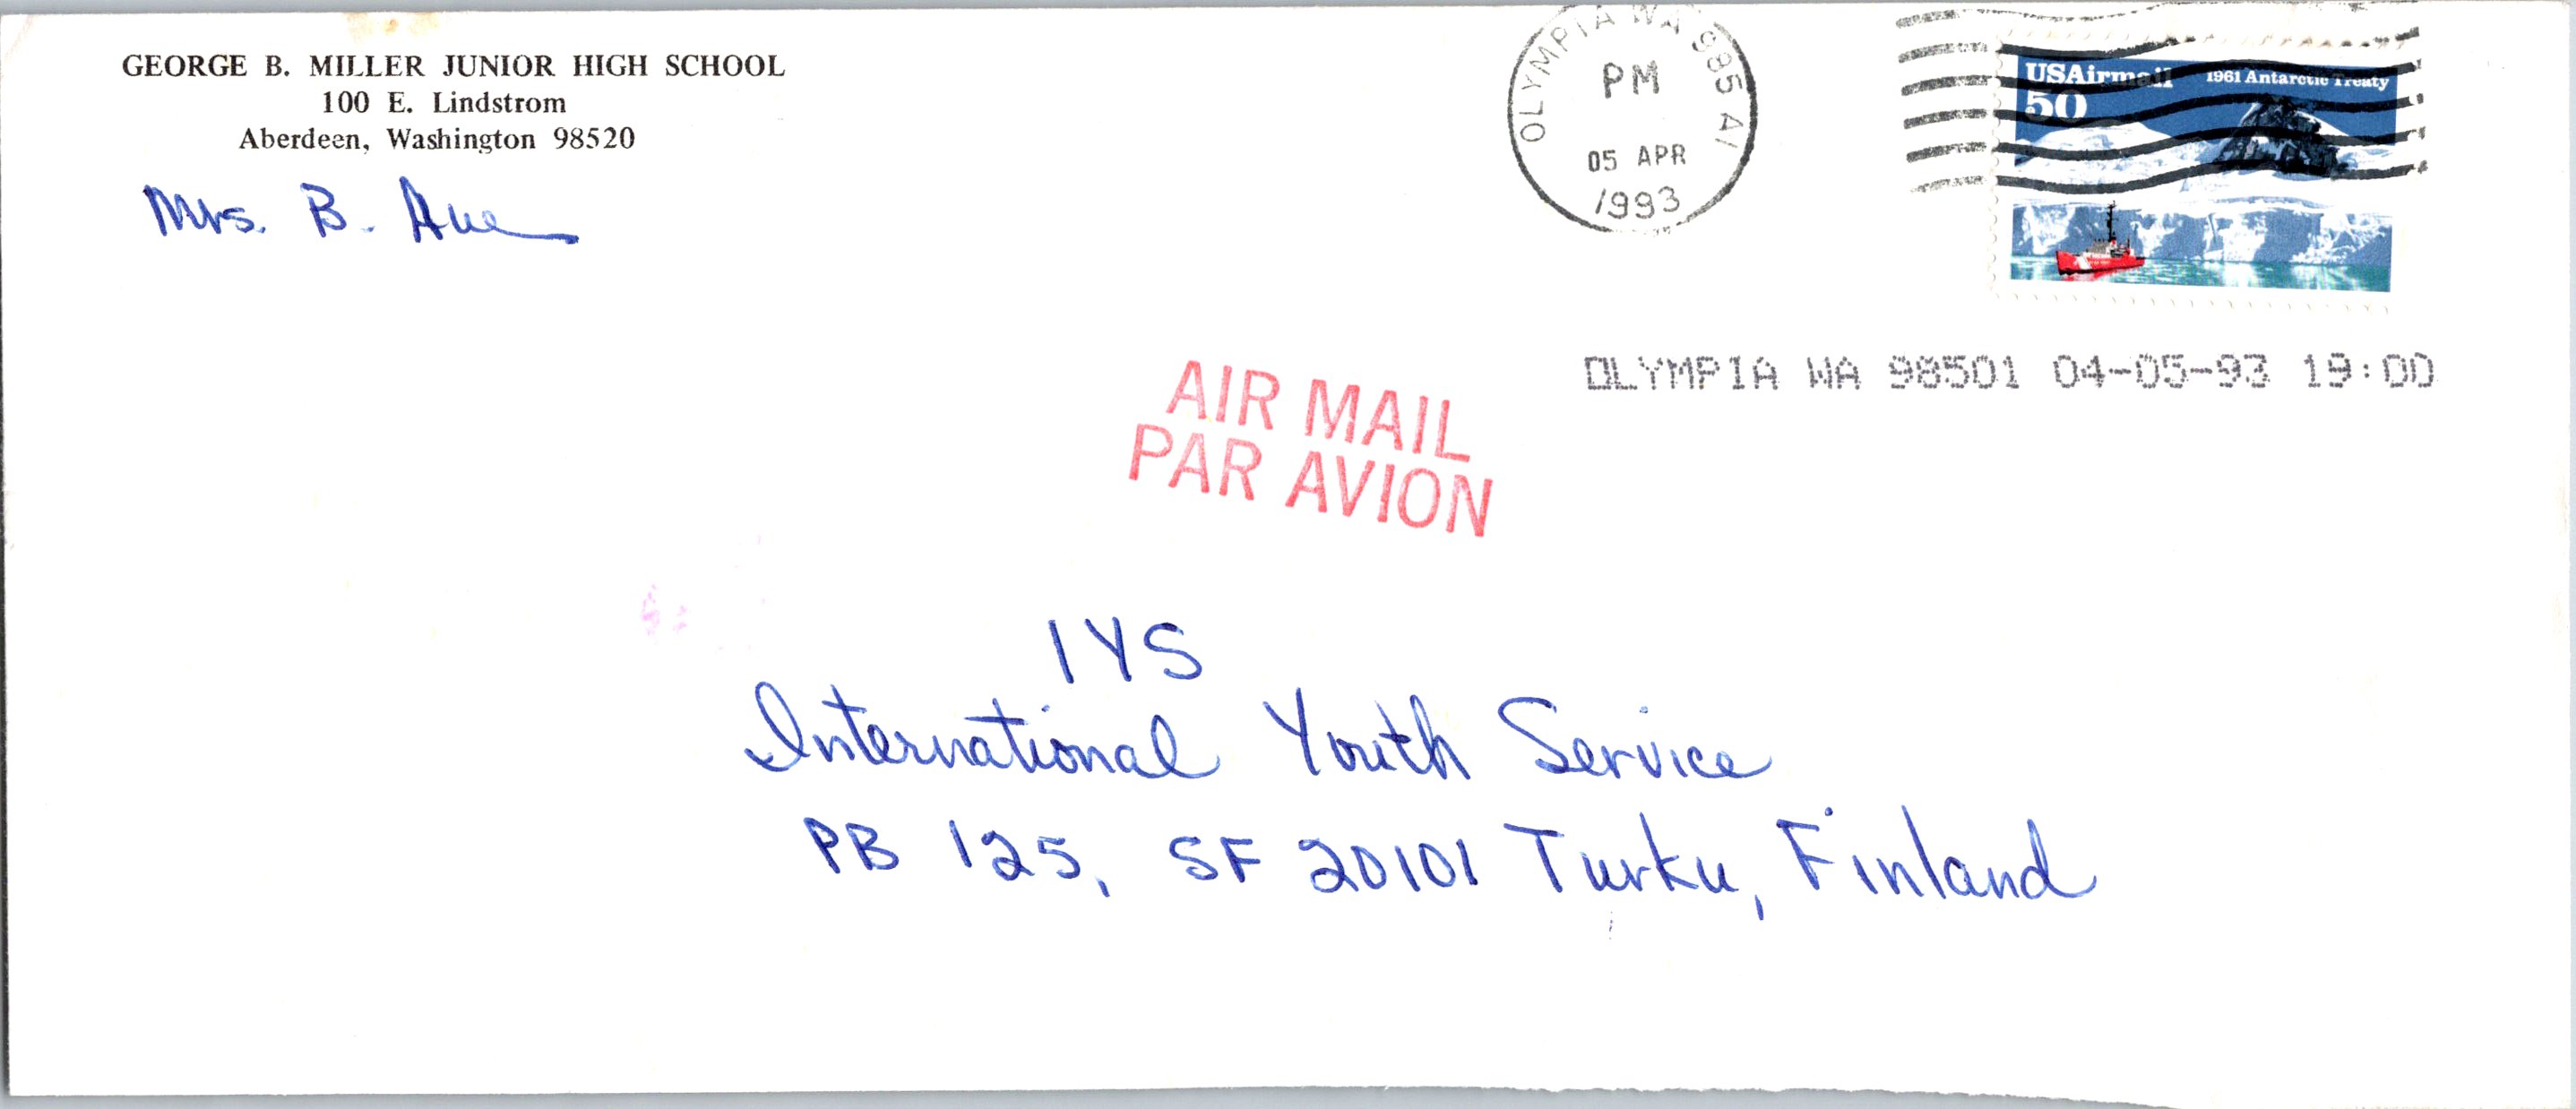 GEORGE B. MILLER JUNIOR HIGH SCHOOL
100 E. Lindstrom
Aberdeen, Washington 98520
Mrs. B. Aue
OLYMPIA WA 985 A1
PM
05 APR
1993
USAirmail
50
1961 Antarctic Treaty
OLYMPIA WA 98501 04-05-93 19:00
AIR MAIL
PAR AVION
IYS
International Youth Service
PB 125, SF 20101 Turku, Finland